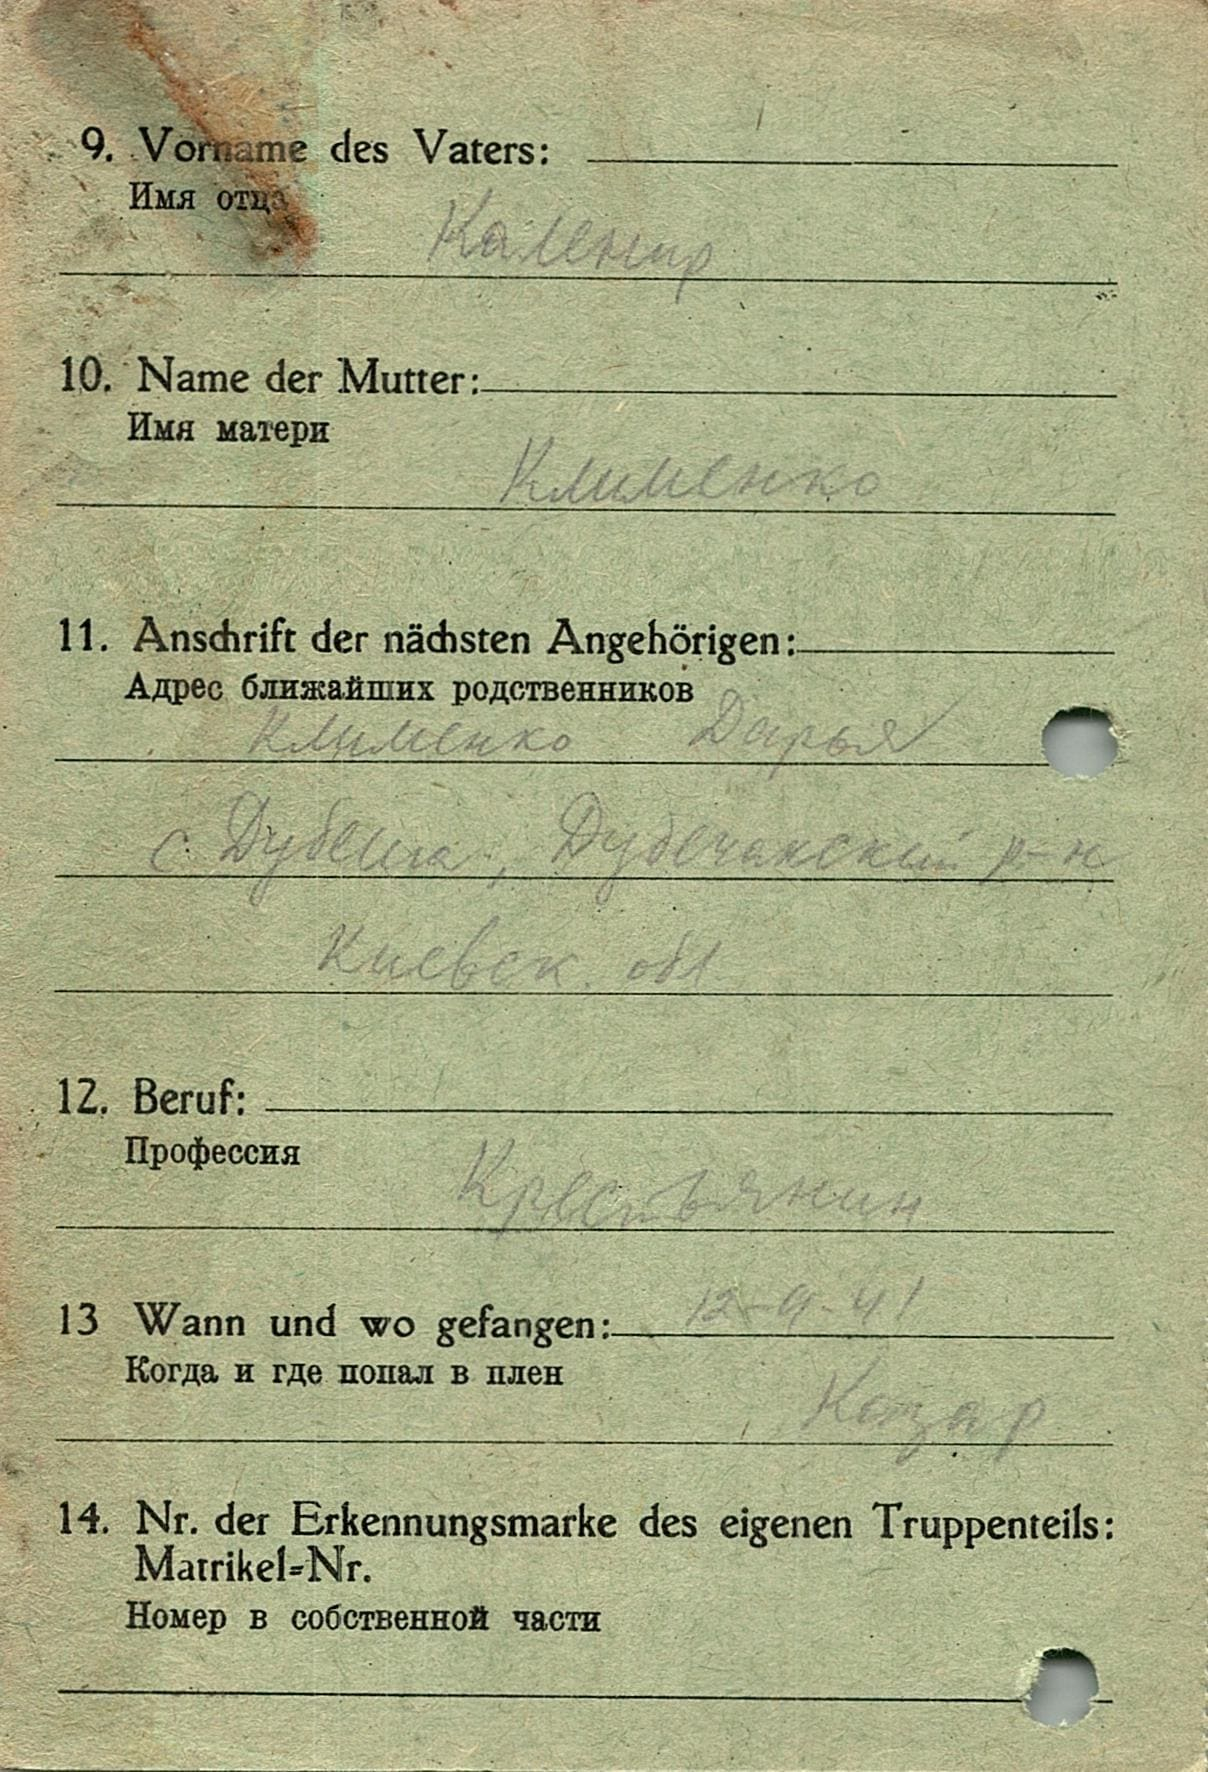 9. Vorname des Vaters:
Имя отца
Каленир
10. Name der Mutter:
Имя матери
Клименко
11. Anschrift der nächsten Angehörigen:
Адрес ближайших родственников
Клименко Дарья
с. Дубечанский р-н
Киевск. обл
12. Beruf:
Профессия
Крестьянин
13 Wann und wo gefangen: 12-9-41
Когда и где попал в плен
14. Nr. der Erkennungsmarke des eigenen Truppenteils:
Matrikel=Nr.
Номер в собственной части